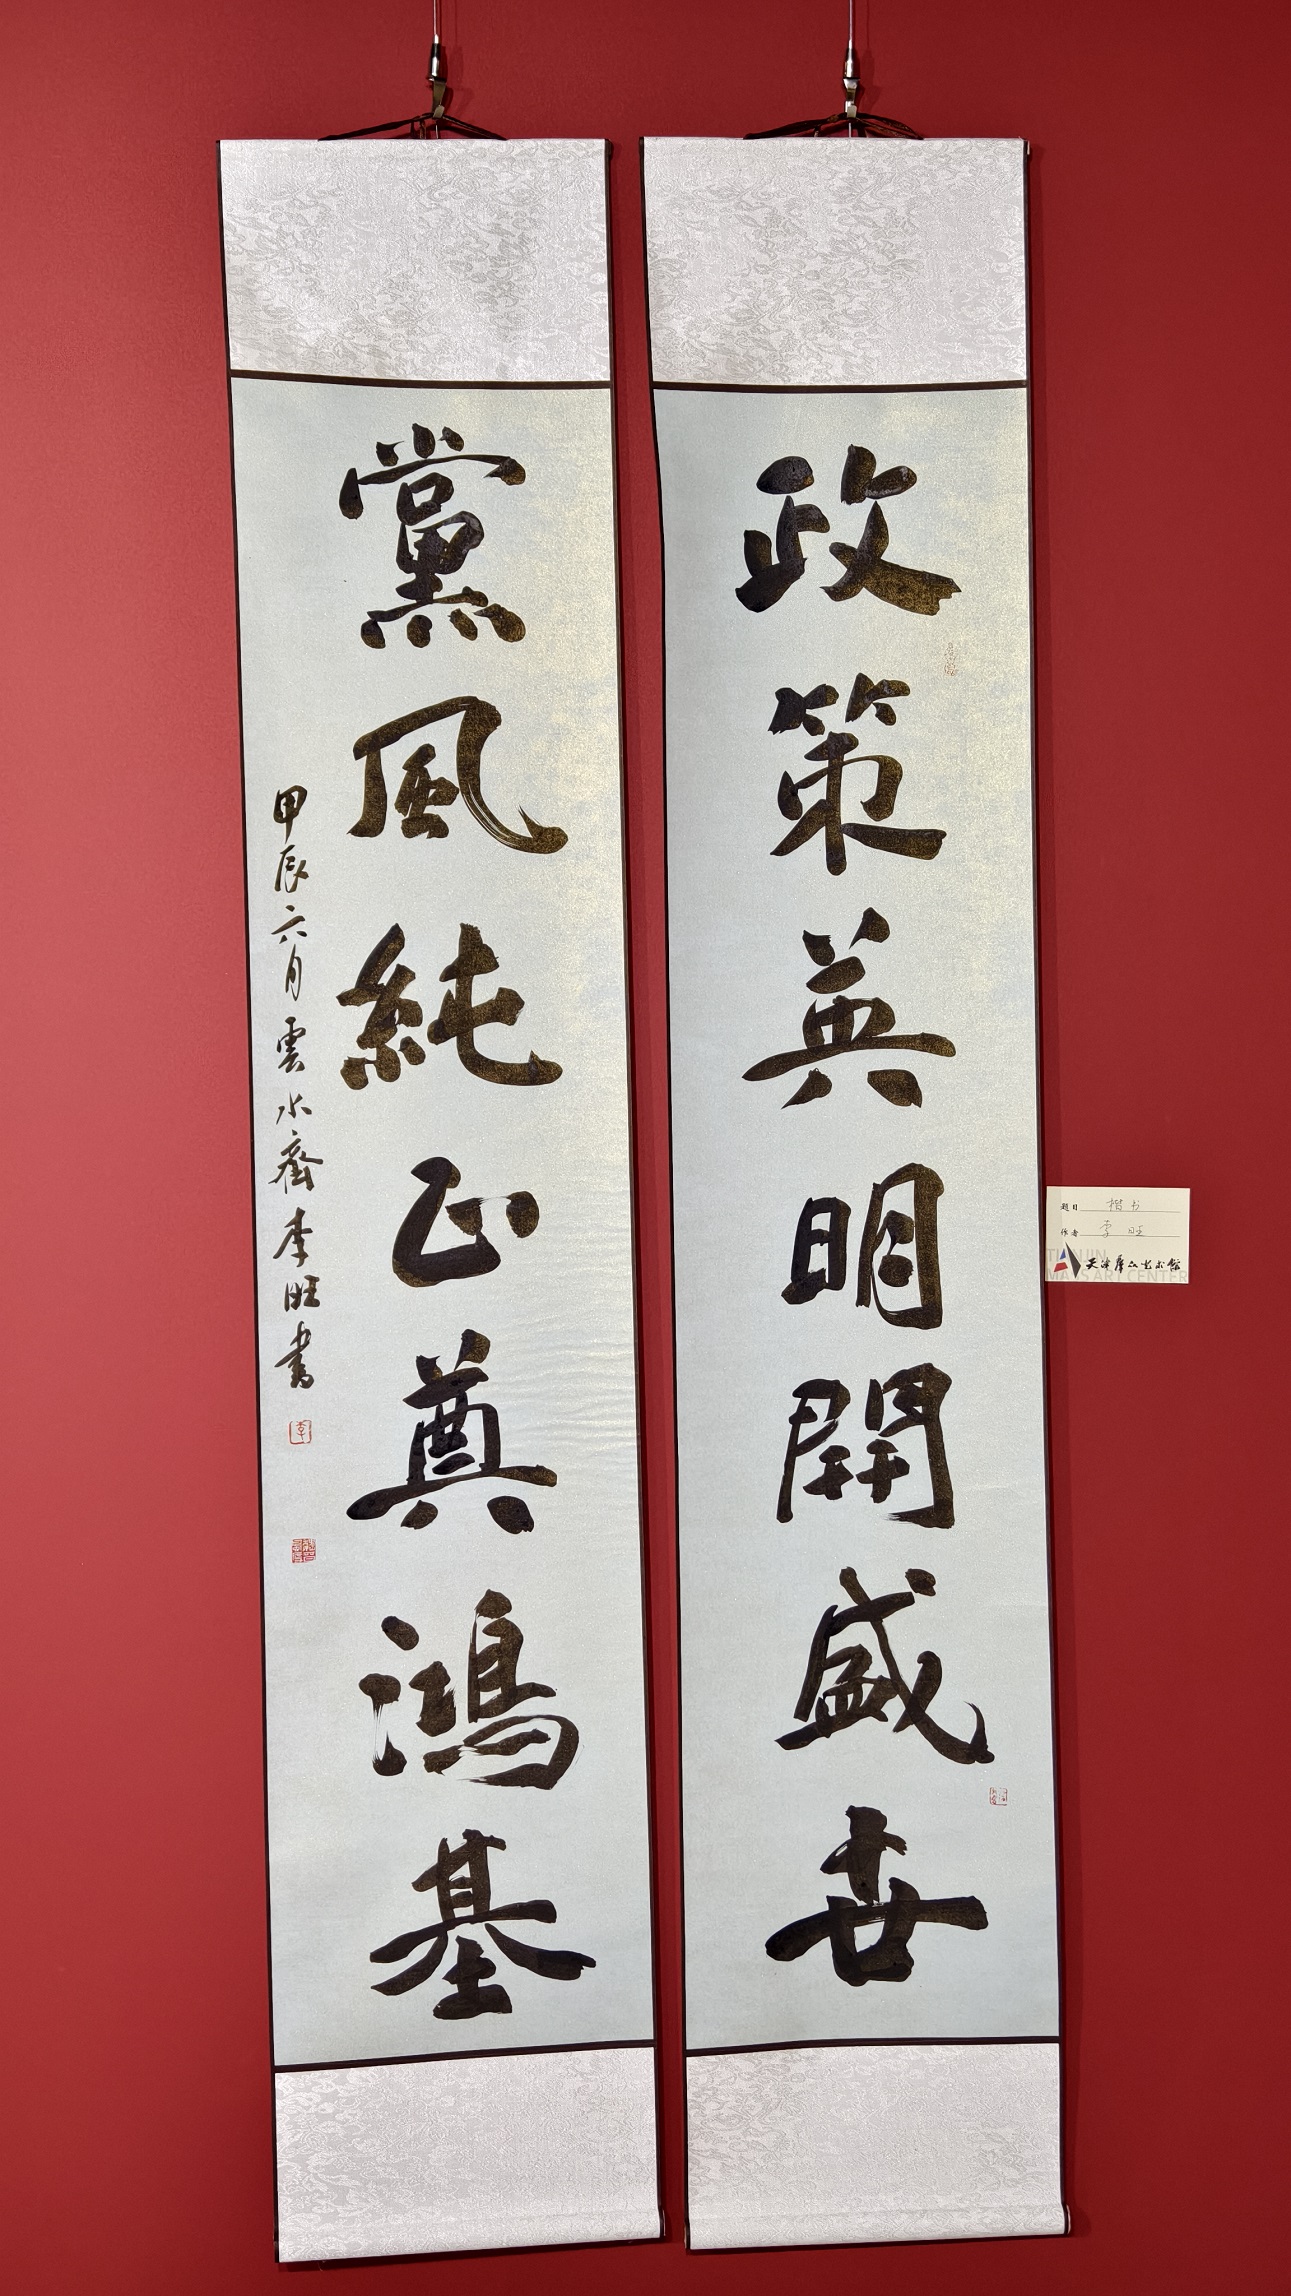 政策英明開盛世
黨風純正奠鴻基
甲辰六月雲水齋李旺書
李
题目 楷书
作者 李旺
TIANJIN
MASS ART CENTER
天津群众艺术馆